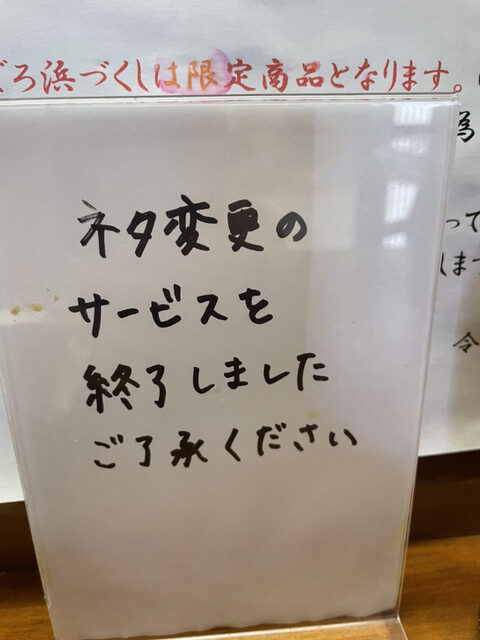 ごろ浜づくしは限定商品となります。
ネタ変更の
サービスを
終了しました
ご了承ください
為
って
します
令